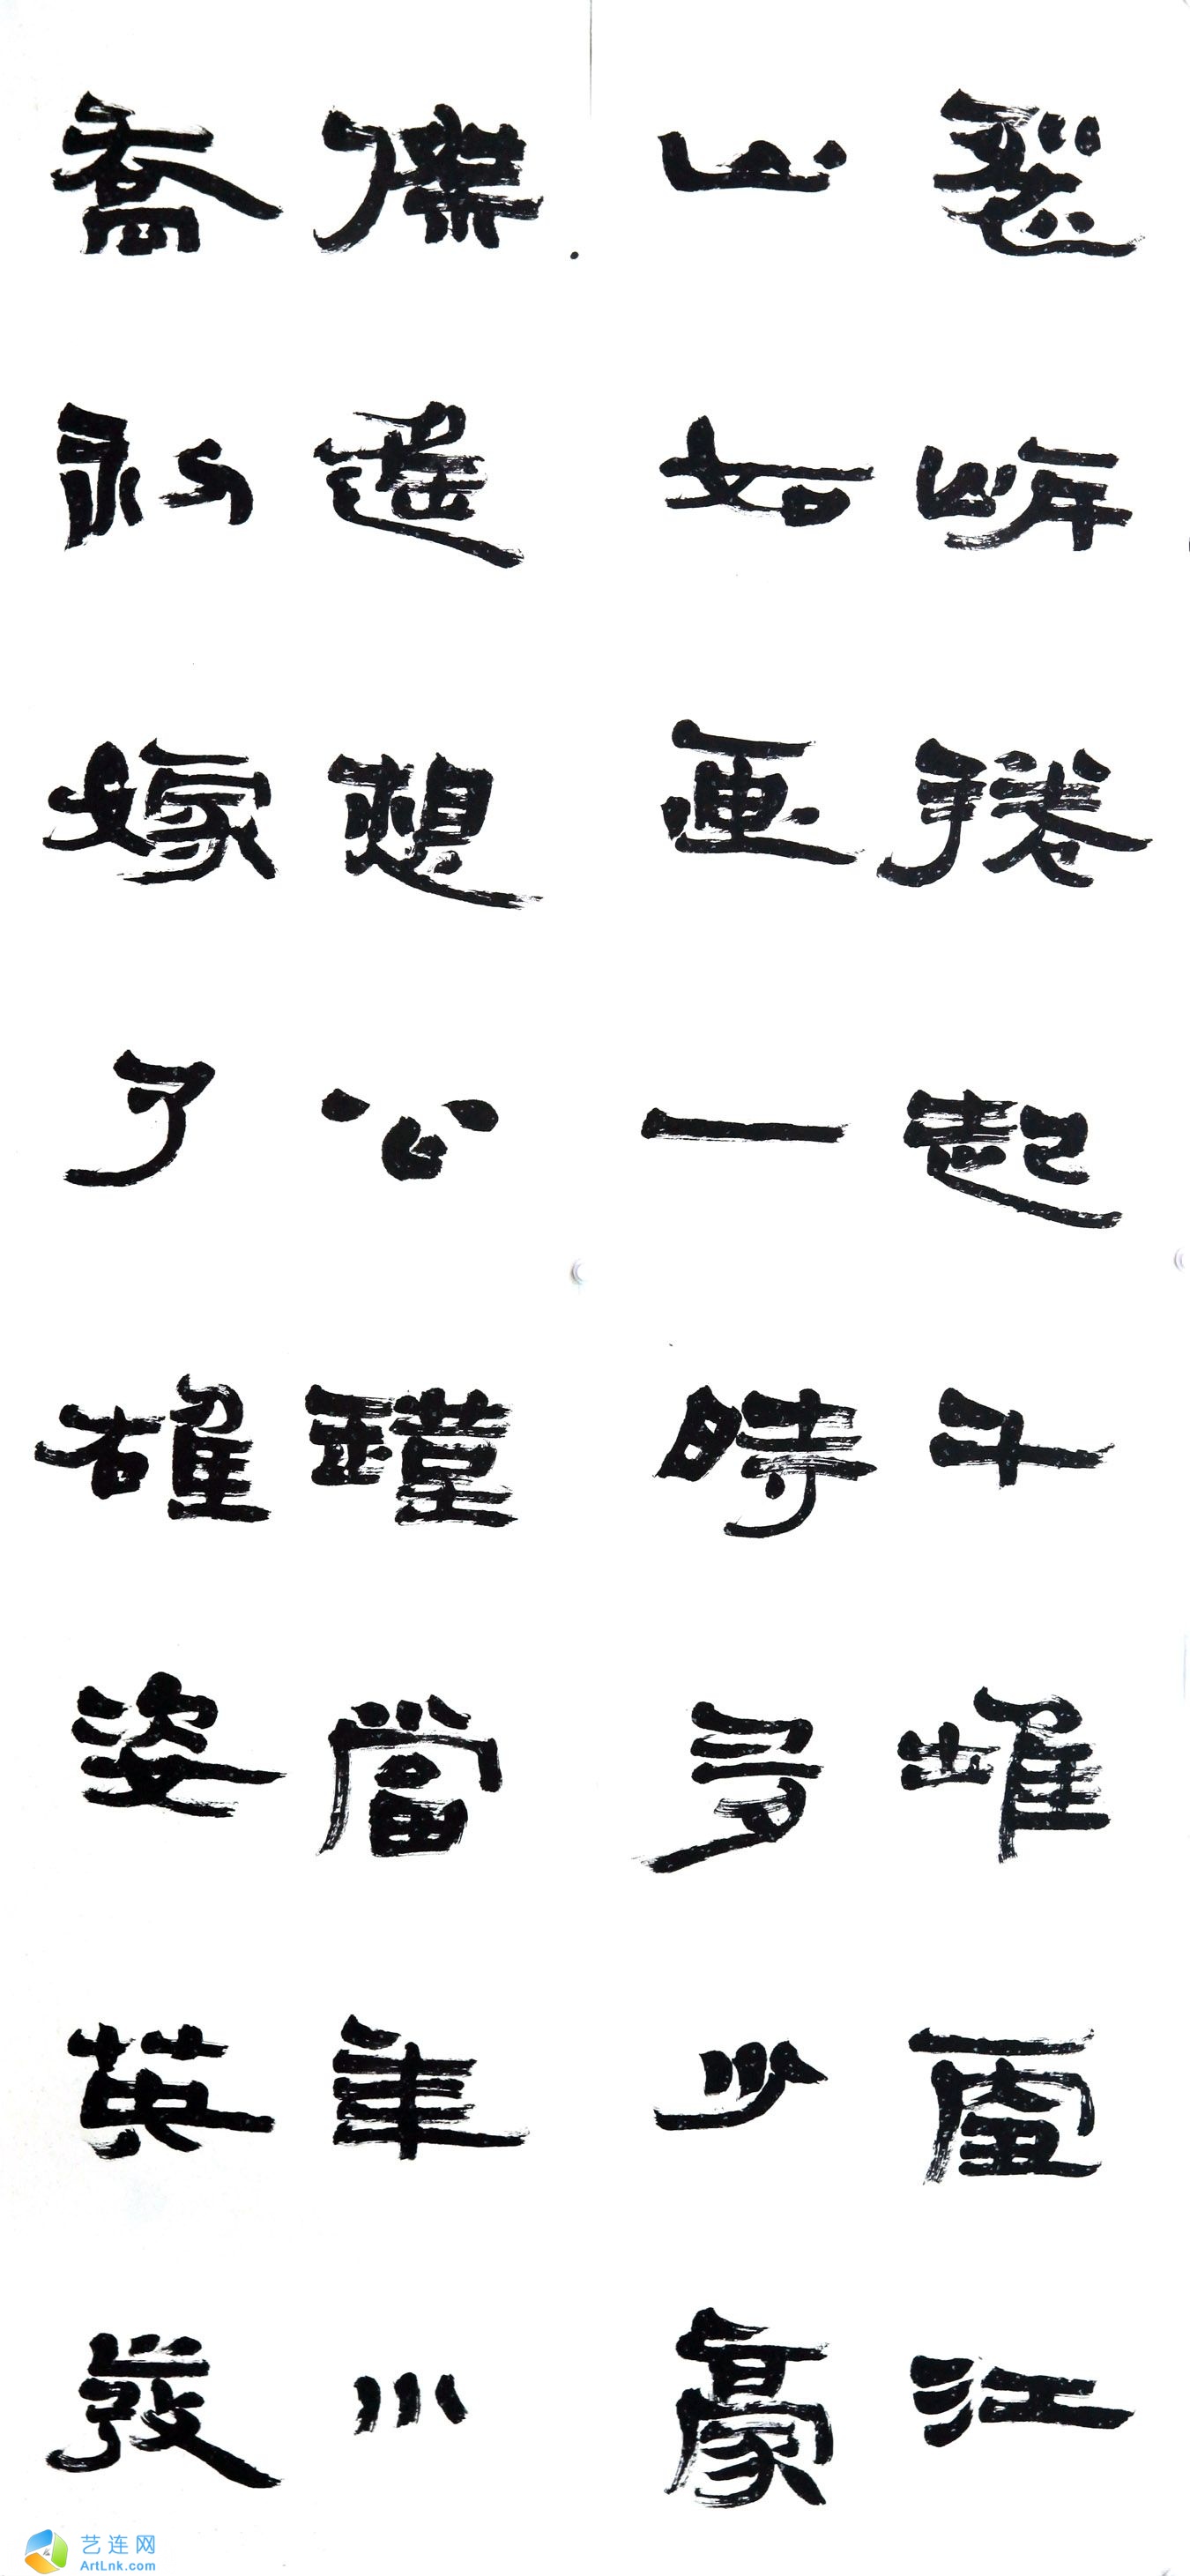 裂岸捲起千堆雪江
山如画一時多少豪
傑遙想公瑾當年小
喬初嫁了雄姿英發
艺连网
ArtLnk.com